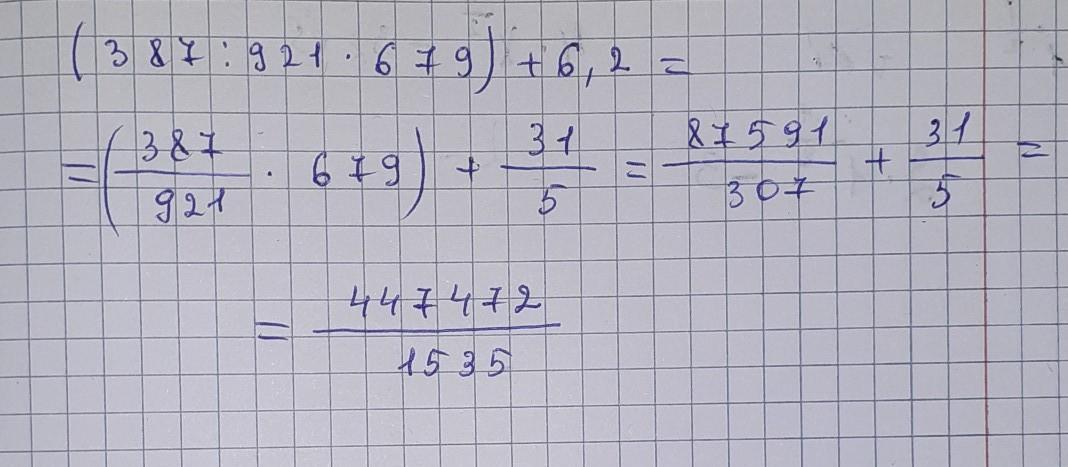 (387:921·679)+6,2=
=(387/921·679)+31/5=87591/307+31/5=
=447472/1535